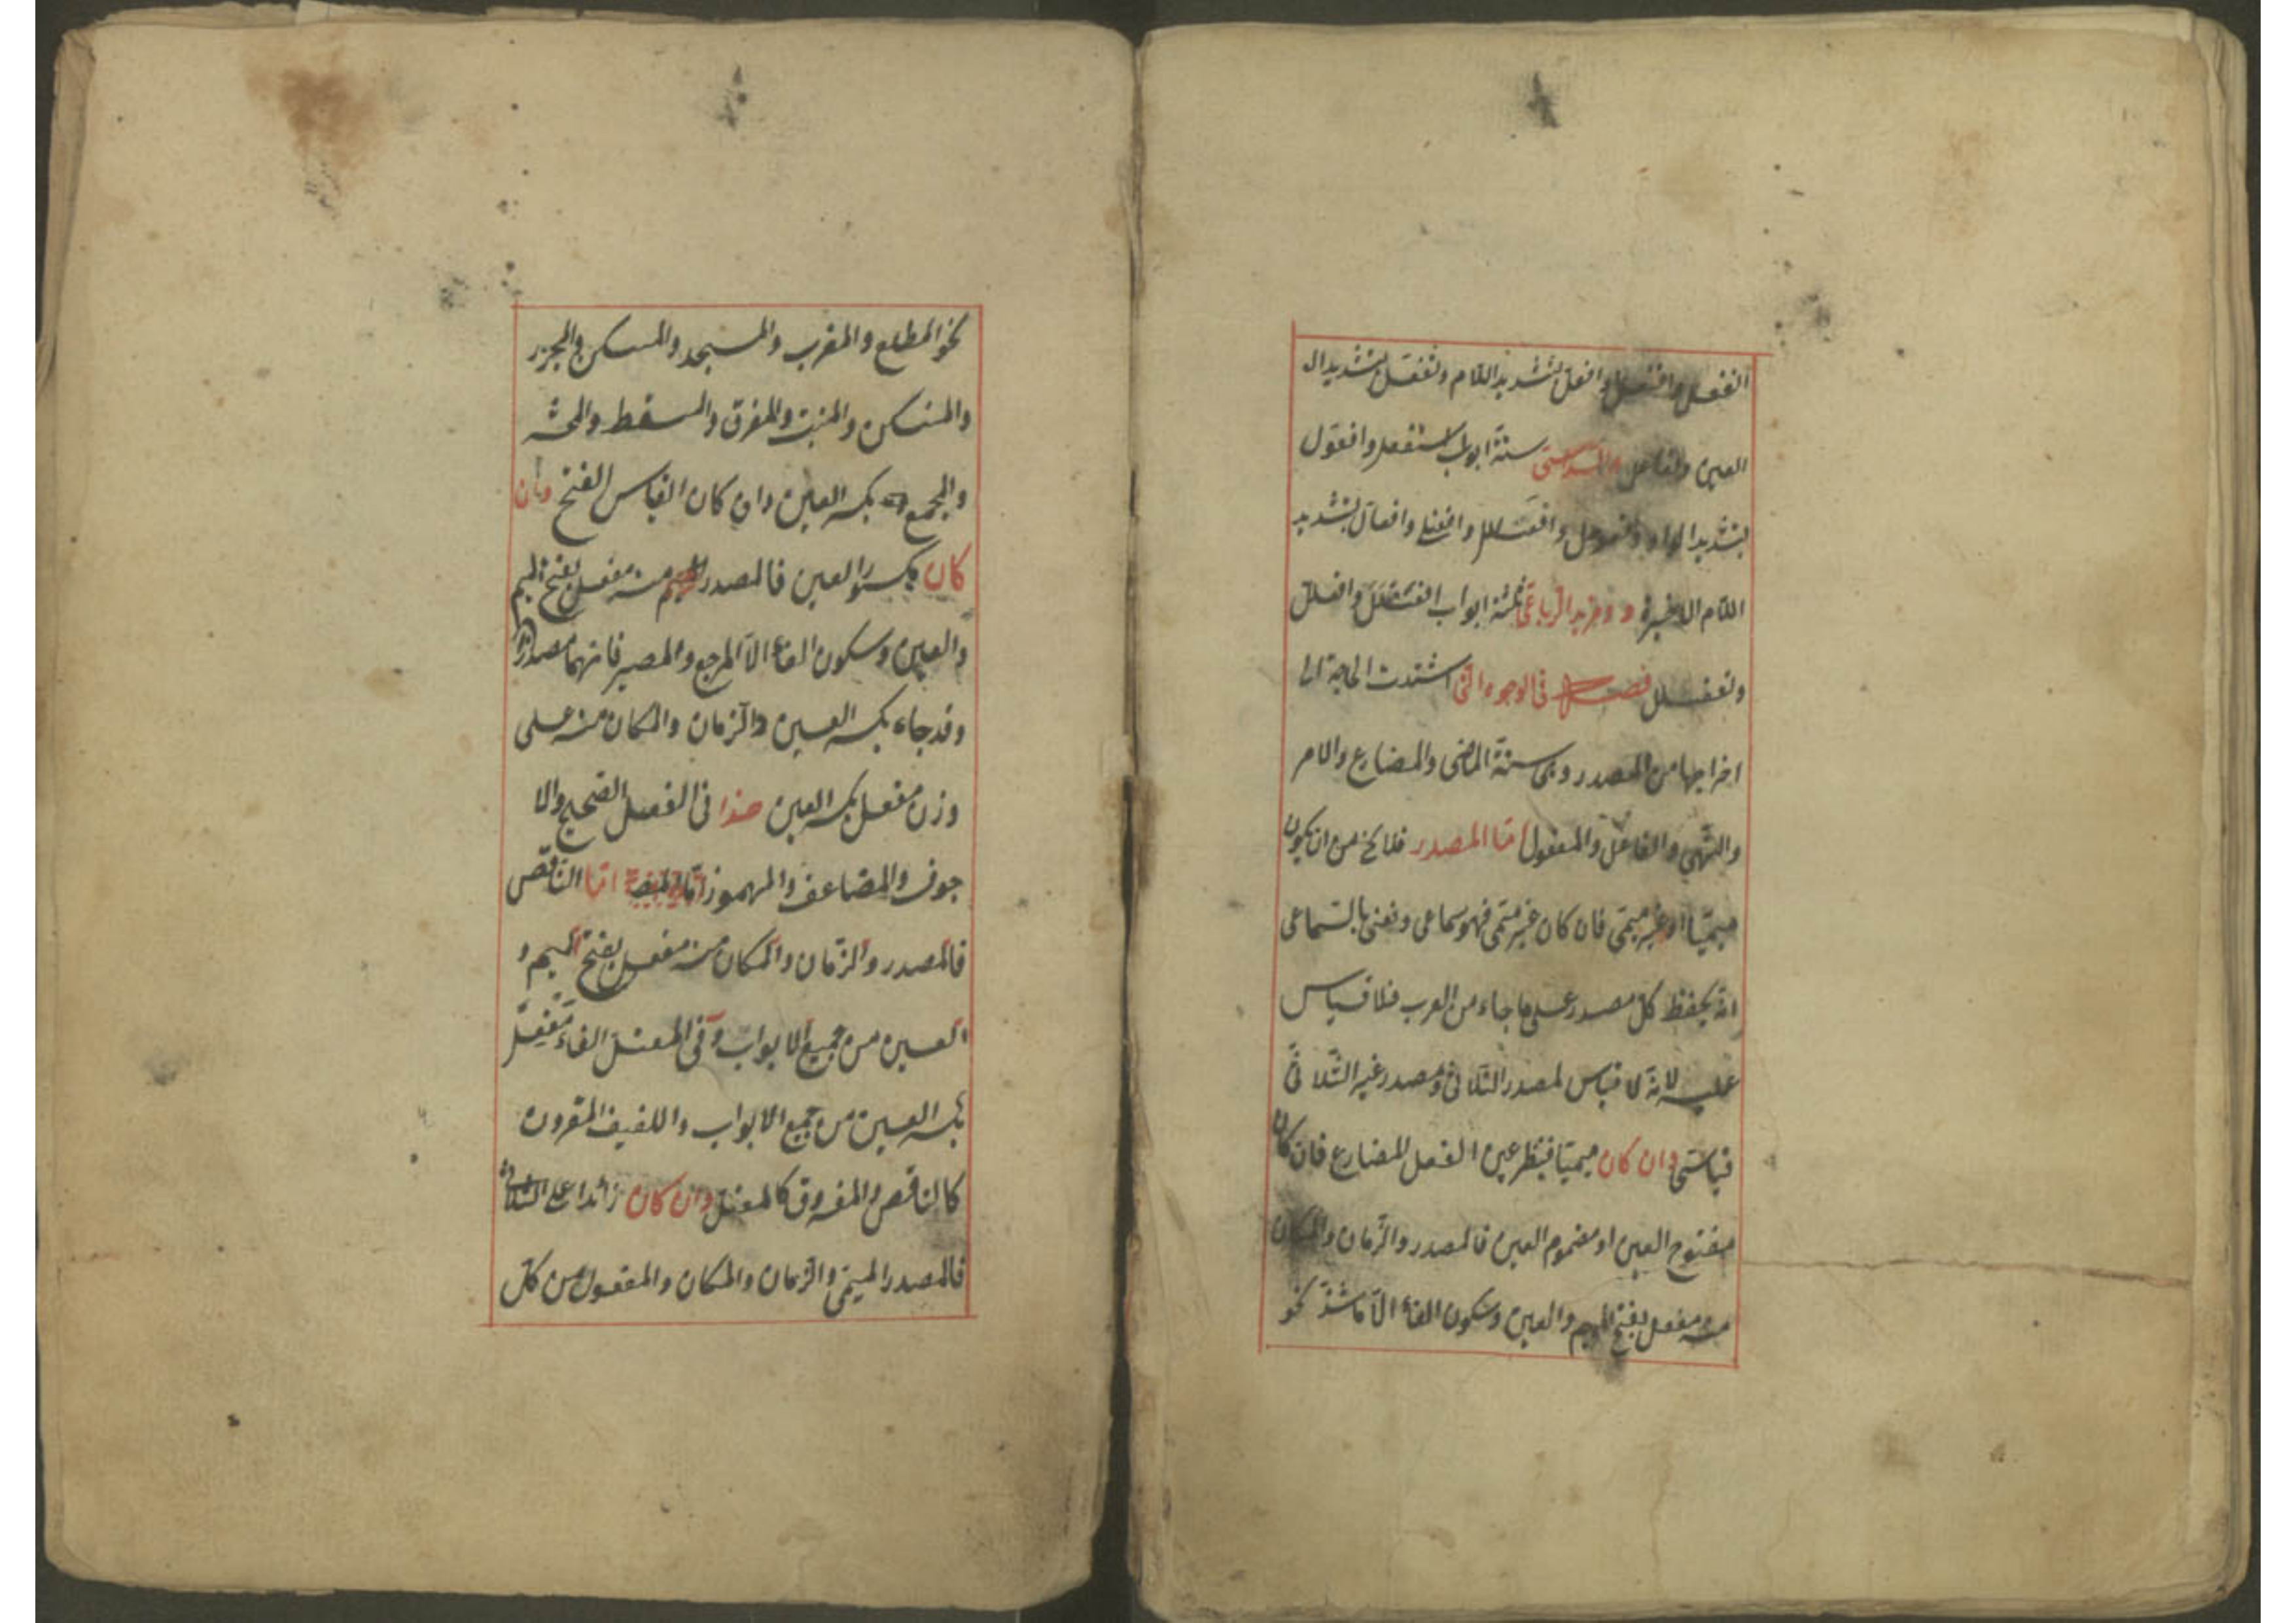 انفعل وافتعل وافعلّ بتشديد اللام وتفعّل بتشديد ال
العين وتفاعل والسداسى ستة ابواب استفعل وافعوّل
بتشديد الواو وافعوعل وافعنلل وافعنلى وافعالّ بتشديد
اللام الاخيرة ومزيد الرباعى ثلثة ابواب افعنلل وافعللّ
وتفعلل فصل فى الوجوه التى اشتدت الحاجة الى
اخراجها من المصدر وهى ستة الماضى والمضارع والامر
والنهى والفاعل والمفعول امّا المصدر فلا يخ من ان يكون
ميميّا او غير ميمىّ فان كان غير ميمىّ فهو سماعى ونعنى بالسماعى
انه يحفظ كلّ مصدر على ما جاء من العرب فلا قياس
عليه لانه لا قياس لمصدر الثلاثى ومصدر غير الثلاثى
قياسىّ وان كان ميميّا فينظر عين الفعل المضارع فان كان
مفتوح العين او مضموم العين فالمصدر والزمان والمكان
منه مفعل بفتح الميم والعين وسكون الفاء الّا ما شذّ نحو
نحو المطلع والمغرب والمسجد والمسكن والمجزر
والمنسك والمنبت والمفرق والمسقط والمحشر
والمجمع بكسر العين وان كان القياس الفتح وان
كان مكسور العين فالمصدر منه مفعل بفتح الميم
والعين وسكون الفاء الّا المرجع والمصير فانهما مصدران
وقد جاء بكسر العين والزمان والمكان منه على
وزن مفعل بكسر العين هذا فى الفعل الصحيح والا
جوف والمضاعف والمهموز امّا الناقص
فالمصدر والزمان والمكان منه مفعل بفتح الميم و
العين من جميع الابواب وفى المعتل الفاء مفعل
بكسر العين من جميع الابواب واللفيف المقرون
كالناقص والمفروق كالمعتل وان كان زائدا على الثلاثى
فالمصدر الميمىّ والزمان والمكان والمفعول من كلّ